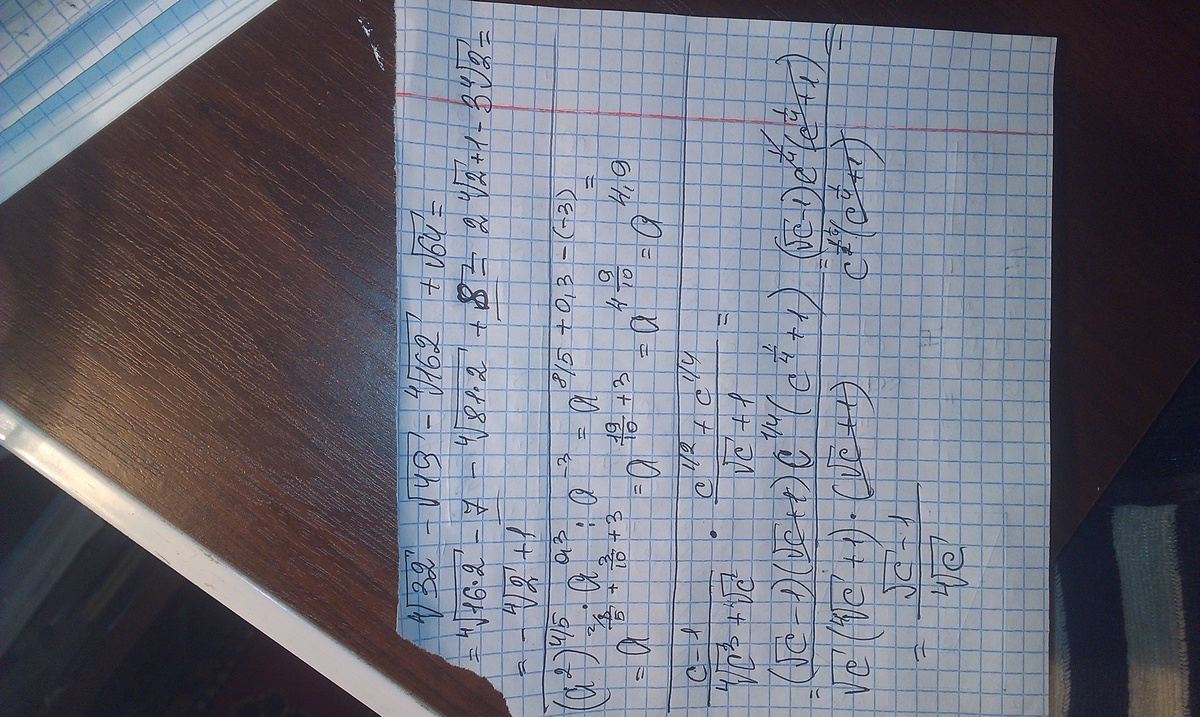 ⁴√32 − √49 − ⁴√162 + √64 =
= ⁴√16·2 − 7 − ⁴√81·2 + 8 = 2 ⁴√2 + 1 − 3 ⁴√2 =
= − ⁴√2 + 1
(a²)^4/5 · a^0,3 : a^−3 = a^8/5 + 0,3 − (−3) =
= a^8/5 + 3/10 + 3 = a^19/10 + 3 = a^4 9/10 = a^4,9
c − 1 / ⁴√c³ + ⁴√c² · c^1/2 + c^1/4 / √c + 1 =
= (√c − 1)(√c + 1) c^1/4 (c^1/4 + 1) / √c (⁴√c + 1) · (√c + 1) = (√c − 1) c^1/4 (c^1/4 + 1) / (c^1/4 + 1) =
= √c − 1 / ⁴√c